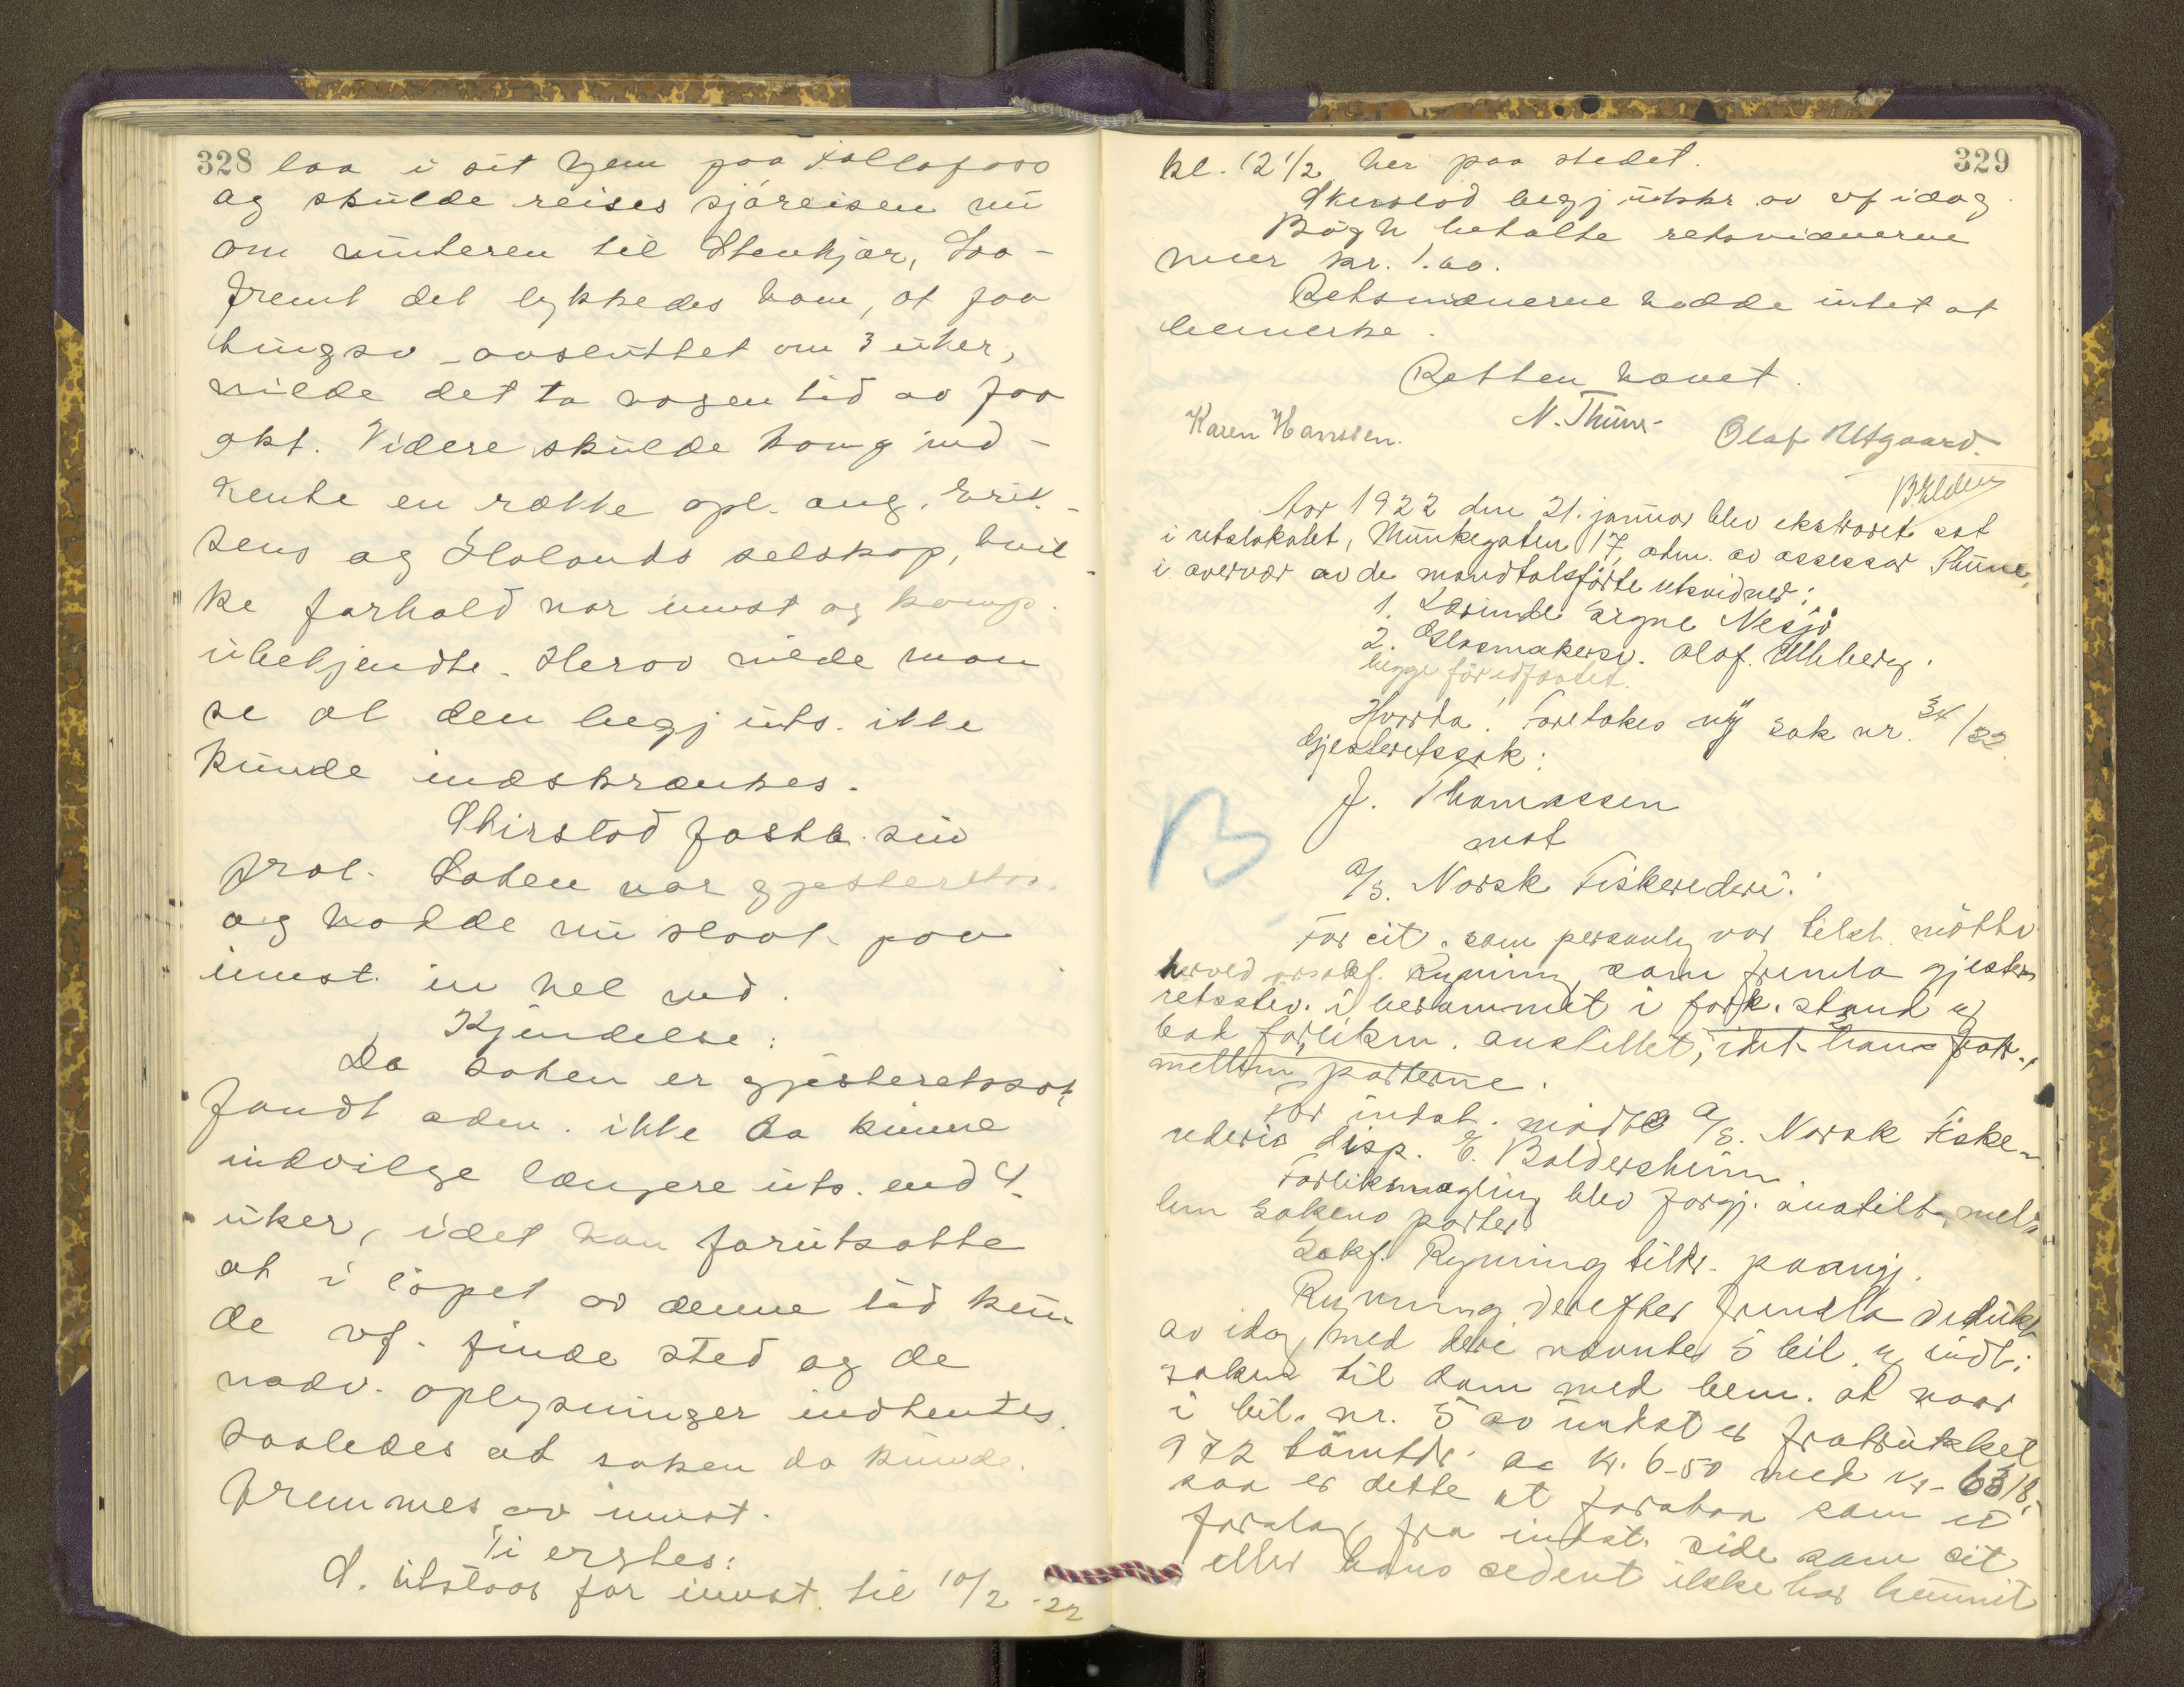 328 laa i sit hjem paa Follafoss
og skulde reises sjøreisen nu
om vinteren til Stenkjær, Saa-
fremt det lykkedes ham, at faa
tingsv. avsluttet om 3 uker,
vilde det ta nogen tid at faa
akt. Videre skulde kamp ind-
hente en række opl. ang. Erik-
sens og Holands selskap, hvil-
ke forhold var innst og komp.
ubekjendte. Herav vilde man
se at den begj uts. ikke
kunde indskrænkes.
Skirstad fasth. sin
prot. Saken var gjesteretss.
og hadde nu staat paa
innst. in hel md.
Kjendelse:
Da saken er gjesteretssak
fandt adm. ikke da kunne
indvilge længere uts. end 4
uker, idet han forutsatte
at i løpet av denne tid kun-
de vf. finde sted og de
nødv. oplysninger indhentes
saaledes at saken da kunde
fremmes av innst.
Ti ergtes:
S. utstaar for innst. til 10/2 -22
329
kl. 12 1/2 her paa stedet.
Skirstad begj utskr. av vf idag.
Bøgh betalte retsvidnerne
mer kr. 1.00.
Retsvidnerne hadde intet at
bemerke.
Retten hævet.
Karen Hanssen. N. Thune Olaf Utgaard.
B Elden
Aar 1922 den 21. januar blev ekstraret sat
i retslokalet, Munkegaten 17, adm. av assessor Thune,
i overvær av de mandtalsførte retsvidner:
1. Lærerinde Signe Nesjø
2. Glasmakersv. Olaf Uhlberg.
begge før edfæstet.
Hvorda! Foretokes ny sak nr. 34/22
Gjesteretssak:
J. Thomassen
mot
B
A/S. Norsk Fiskerederi.
For cit. som personlig var tilst. møtte
herved orsakf. Ryning, som fremla gjeste-
retsstev. i berammet i fork. stand og
bad forliksm. anstillet, idet hans fork.
mellem parterne.
For indst. mødte A/S. Norsk Fiske-
rederis disp. E. Baldersheim
Forliksmægling blev forgj. anstillt mel-
lem sakens parter
Sakf. Ryning tiltr. paany.
Ryning derefter fremla deduks
av idag med deri nævnte 5 bil. og indl.
saken til dom med bem. at naar
i bil. nr. 5 av indst er fratrukket
972 tømtdr. a kr. 6-50 med kr. 6318,-
saa er dette at forstaa som et
forslag fra indst. side som cit
eller hans cedent ikke har kunnet